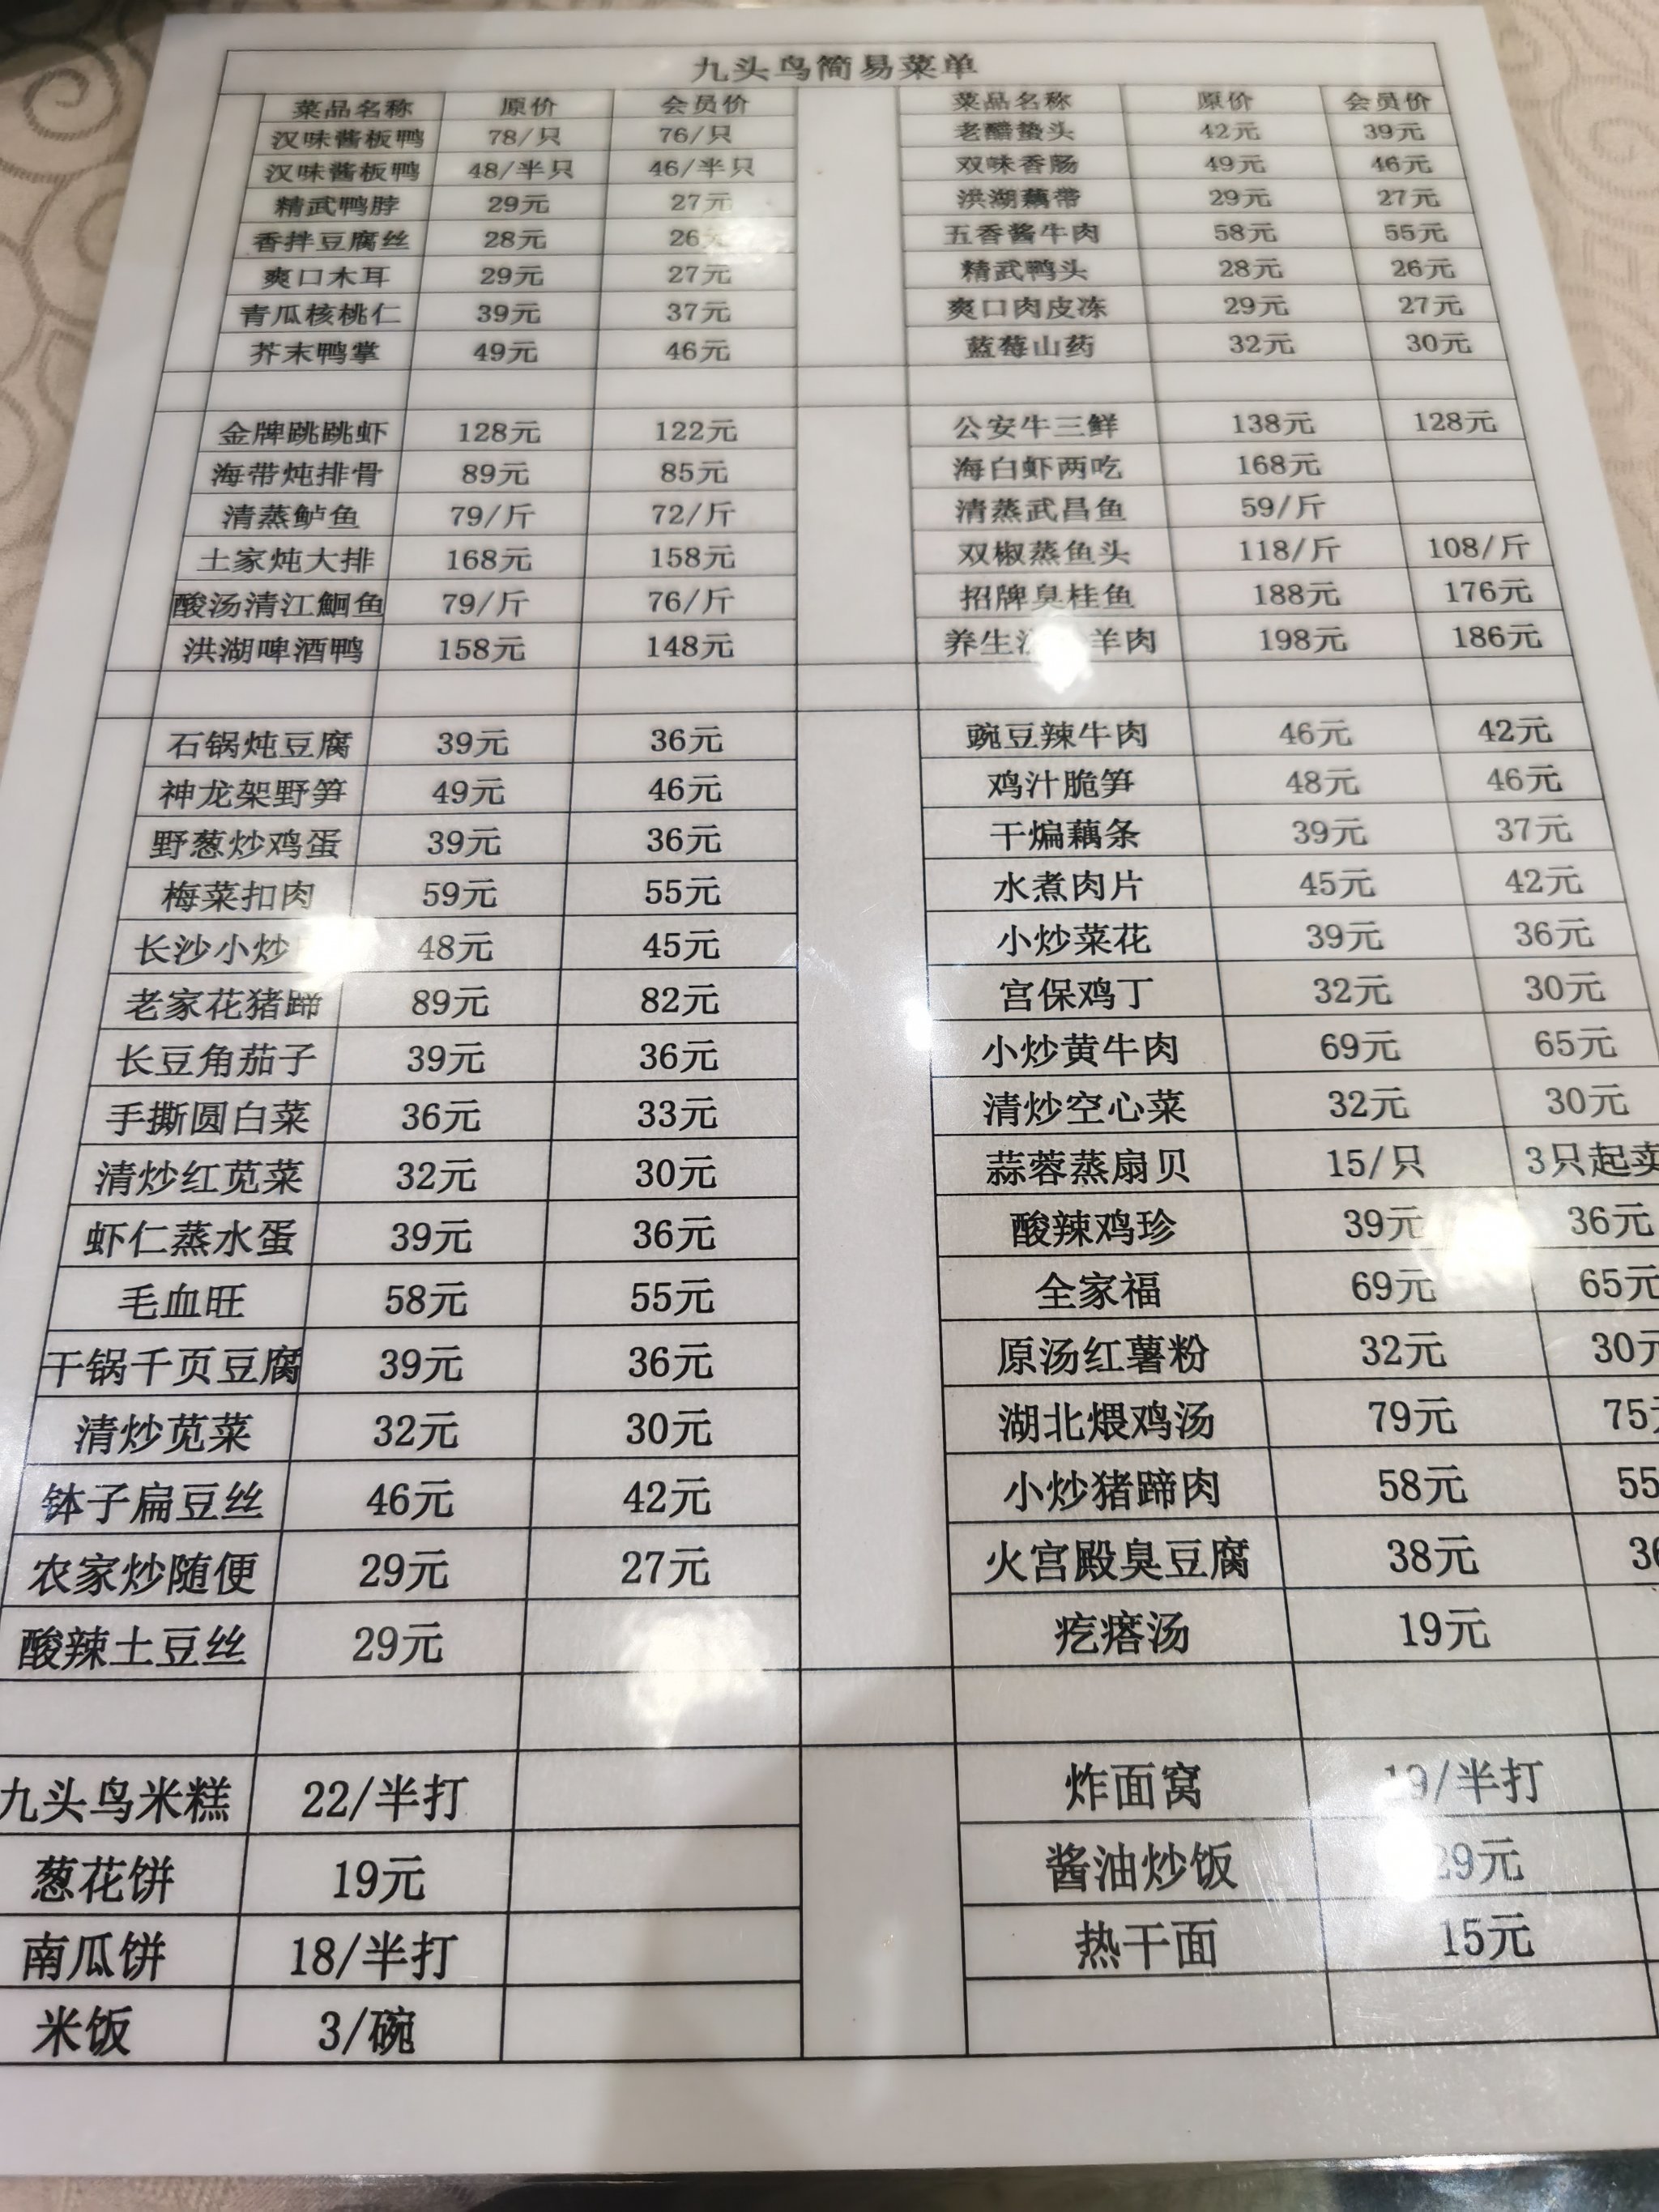 九头鸟简易菜单
菜品名称 原价 会员价 菜品名称 原价 会员价
汉味酱板鸭 78/只 76/只 老醋蛰头 42元 39元
汉味酱板鸭 48/半只 46/半只 双味香肠 49元 46元
精武鸭脖 29元 27元 洪湖藕带 29元 27元
香拌豆腐丝 28元 26 五香酱牛肉 58元 55元
爽口木耳 29元 27元 精武鸭头 28元 26元
青瓜核桃仁 39元 37元 爽口肉皮冻 29元 27元
芥末鸭掌 49元 46元 蓝莓山药 32元 30元
金牌跳跳虾 128元 122元 公安牛三鲜 138元 128元
海带炖排骨 89元 85元 海白虾两吃 168元
清蒸鲈鱼 79/斤 72/斤 清蒸武昌鱼 59/斤
土家炖大排 168元 158元 双椒蒸鱼头 118/斤 108/斤
酸汤清江鮰鱼 79/斤 76/斤 招牌臭桂鱼 188元 176元
洪湖啤酒鸭 158元 148元 养生 羊肉 198元 186元
石锅炖豆腐 39元 36元 豌豆辣牛肉 46元 42元
神龙架野笋 49元 46元 鸡汁脆笋 48元 46元
野葱炒鸡蛋 39元 36元 干煸藕条 39元 37元
梅菜扣肉 59元 55元 水煮肉片 45元 42元
长沙小炒 48元 45元 小炒菜花 39元 36元
老家花猪蹄 89元 82元 宫保鸡丁 32元 30元
长豆角茄子 39元 36元 小炒黄牛肉 69元 65元
手撕圆白菜 36元 33元 清炒空心菜 32元 30元
清炒红苋菜 32元 30元 蒜蓉蒸扇贝 15/只 3只起卖
虾仁蒸水蛋 39元 36元 酸辣鸡珍 39元 36元
毛血旺 58元 55元 全家福 69元 65元
干锅千页豆腐 39元 36元 原汤红薯粉 32元 30元
清炒苋菜 32元 30元 湖北煨鸡汤 79元 75
钵子扁豆丝 46元 42元 小炒猪蹄肉 58元 55
农家炒随便 29元 27元 火宫殿臭豆腐 38元
酸辣土豆丝 29元 疙瘩汤 19元
九头鸟米糕 22/半打 炸面窝 19/半打
葱花饼 19元 酱油炒饭 29元
南瓜饼 18/半打 热干面 15元
米饭 3/碗